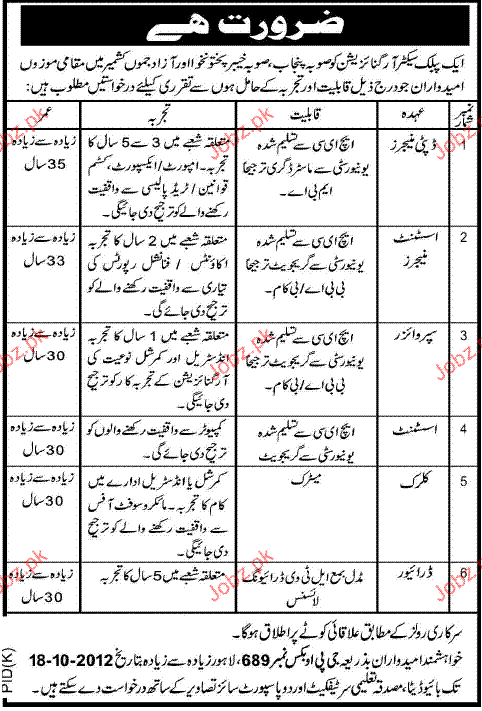 ضرورت ہے
ایک پبلک سیکٹر آرگنائزیشن کو صوبہ پنجاب، صوبہ خیبر پختونخوا اور آزاد جموں کشمیر میں مقامی موزوں
امیدواران جو درج ذیل قابلیت اور تجربہ کے حامل ہوں سے تقرری کیلئے درخواستیں مطلوب ہیں:
نمبر شمار عہدہ قابلیت تجربہ عمر
1 ڈپٹی منیجرز
ایچ ای سی سے تسلیم شدہ
یونیورسٹی سے ماسٹر ڈگری ترجیحاً
ایم بی اے۔
متعلقہ شعبے میں 3 سے 5 سال کا
تجربہ۔ امپورٹ/ایکسپورٹ، کسٹم
قوانین/ٹریڈ پالیسی سے واقفیت
رکھنے والے کو ترجیح دی جائیگی۔
زیادہ سے زیادہ
35 سال
2 اسسٹنٹ
منیجرز
ایچ ای سی سے تسلیم شدہ
یونیورسٹی سے گریجویٹ ترجیحاً
بی بی اے/بی کام۔
متعلقہ شعبے میں 2 سال کا تجربہ
اکاؤنٹس / فنانشل رپورٹس کی
تیاری سے واقفیت رکھنے والے کو
ترجیح دی جائے گی۔
زیادہ سے زیادہ
33 سال
3 سپروائزر
ایچ ای سی سے تسلیم شدہ
یونیورسٹی سے گریجویٹ ترجیحاً
بی بی اے/بی کام۔
متعلقہ شعبے میں 1 سال کا تجربہ
انڈسٹریل اور کمرشل نوعیت کی
آرگنائزیشن کے تجربہ کار کو ترجیح
دی جائیگی۔
زیادہ سے زیادہ
30 سال
4 اسسٹنٹ
ایچ ای سی سے تسلیم شدہ
یونیورسٹی سے گریجویٹ
کمپیوٹر سے واقفیت رکھنے والوں کو
ترجیح دی جائے گی۔
زیادہ سے زیادہ
30 سال
5 کلرک
میٹرک
کمرشل یا انڈسٹریل ادارے میں
کام کا تجربہ۔ مائکروسوفٹ آفس
سے واقفیت رکھنے والے کو ترجیح
دی جائیگی۔
زیادہ سے زیادہ
30 سال
6 ڈرائیور
مڈل بمع ایل ٹی وی ڈرائیونگ
لائسنس
متعلقہ شعبے میں 5 سال کا تجربہ
زیادہ سے زیادہ
30 سال
سرکاری رولز کے مطابق علاقائی کوٹے پر اطلاق ہوگا۔
خواہشمند امیدواران بذریعہ جی پی او بکس نمبر 689، لاہور زیادہ سے زیادہ بتاریخ 18-10-2012
تک بائیو ڈیٹا، مصدقہ تعلیمی سرٹیفکیٹ اور دو پاسپورٹ سائز تصاویر کے ساتھ درخواست دے سکتے ہیں۔
PID(K)
Jobz.pk